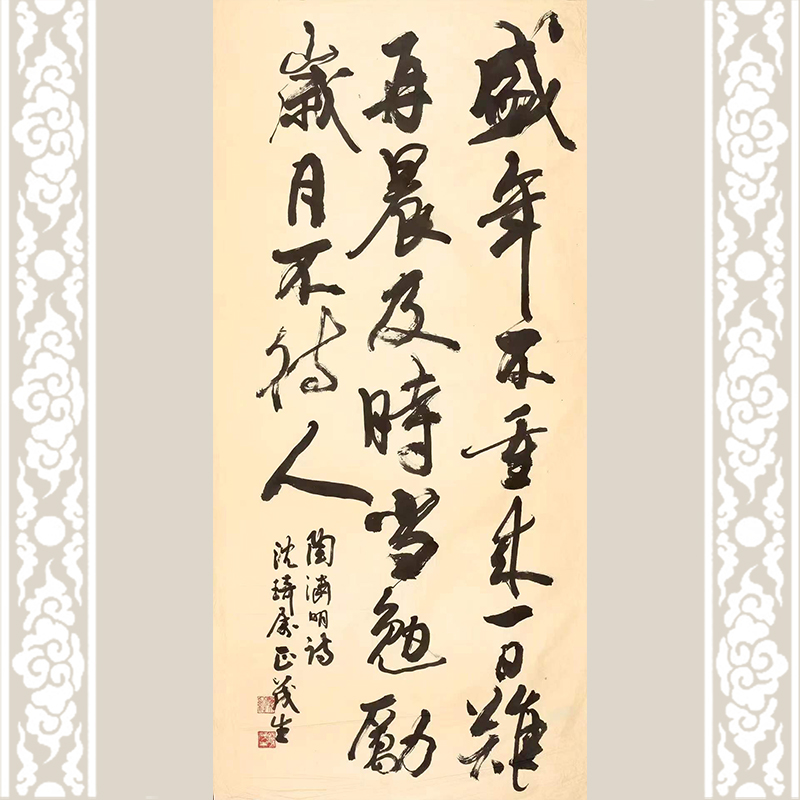 盛年不重来一日難
再晨及時當勉勵
歲月不待人
陶淵明詩
沈 屬正 茂生